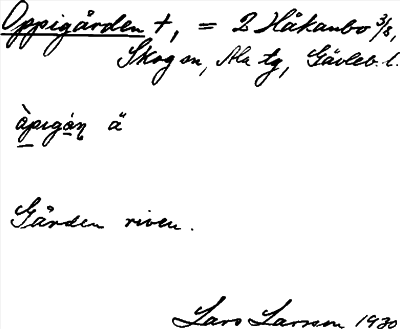 Oppigården †, = 2 Håkanbo 3/8,
Skog sn, Ala tg, Gävleb. l.
òpigán̥ ä
Gården riven.
Lars Larsson 1930